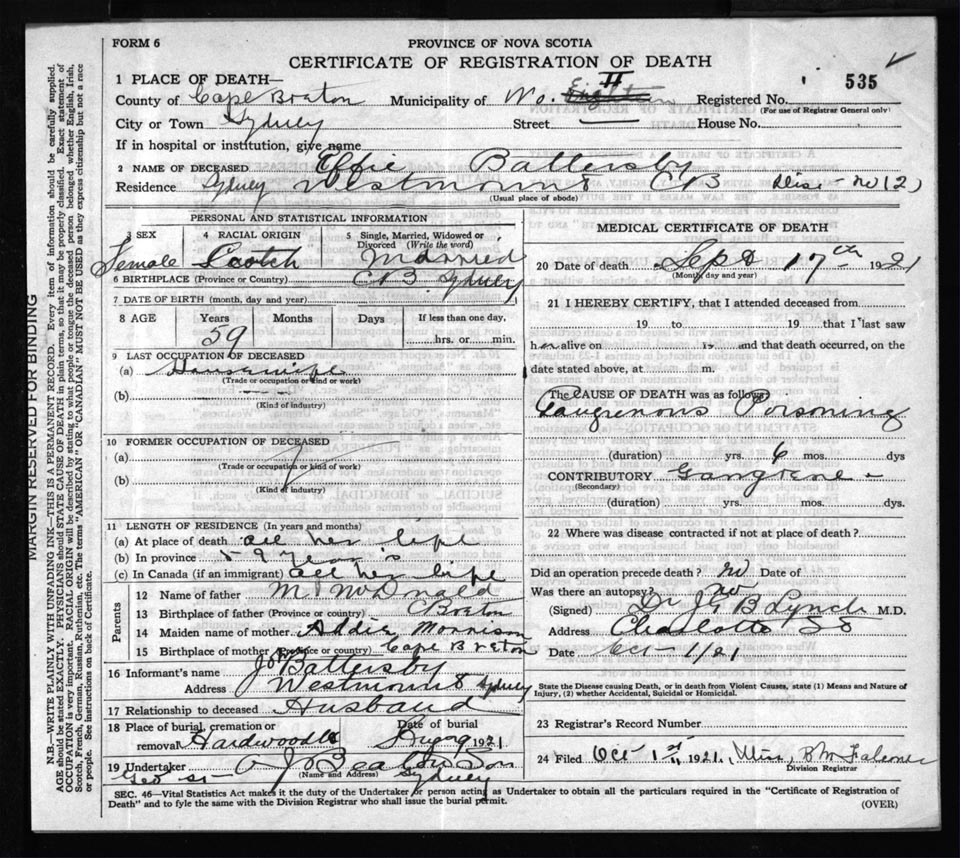 FORM 6
PROVINCE OF NOVA SCOTIA
CERTIFICATE OF REGISTRATION OF DEATH
535
1 PLACE OF DEATH—
County of Cape Breton Municipality of No. II Registered No.
(For use of Registrar General only)
City or Town Sydney Street House No.
If in hospital or institution, give name
2 NAME OF DECEASED Effie Battersby
Residence Sydney Westmount CB
(Usual place of abode)
PERSONAL AND STATISTICAL INFORMATION
3 SEX 4 RACIAL ORIGIN Single, Married, Widowed or Divorced (Write the word)
Female Scotch Married
6 BIRTHPLACE (Province or Country) CB Sydney
7 DATE OF BIRTH (month, day and year)
8 AGE Years Months Days If less than one day,
59 hrs. or min.
9 LAST OCCUPATION OF DECEASED
(a) Housewife
(Trade or occupation or kind or work)
(b)
(Kind of industry)
10 FORMER OCCUPATION OF DECEASED
(a)
(Trade or occupation or kind of work)
(b)
(Kind of industry)
11 LENGTH OF RESIDENCE (In years and months)
(a) At place of death all her life
(b) In province 59 years
(c) In Canada (if an immigrant) all her life
Parents
12 Name of father M McDonald
13 Birthplace of father (Province or country) C Breton
14 Maiden name of mother Addie Morrison
15 Birthplace of mother (Province or country) Cape Breton
16 Informant's name J Battersby
Address Westmount Sydney
17 Relationship to deceased Husband
18 Place of burial, cremation or removal Hardwood Date of burial 1921
19 Undertaker A J Beaton Son
(Name and Address) Sydney
Geo St
MEDICAL CERTIFICATE OF DEATH
20 Date of death Sept 17th 1921
(Month, day and year)
21 I HEREBY CERTIFY, that I attended deceased from
19 to 19 that I last saw
her alive on 19 and that death occurred, on the
date stated above, at m.
The CAUSE OF DEATH was as follows:
Gangrenous Poisoning
(duration) yrs. 6 mos. dys
CONTRIBUTORY Gangrene
(Secondary)
(duration) yrs. mos. dys.
22 Where was disease contracted if not at place of death?
Did an operation precede death? no Date of
Was there an autopsy? no
(Signed) Dr J G B Lynch M.D.
Address Charlotte St
Date Oct 1/21
State the Disease causing Death, or in death from Violent Causes, state (1) Means and Nature of Injury, (2) whether Accidental, Suicidal or Homicidal.
23 Registrar's Record Number
24 Filed Oct 1st 1921
Division Registrar
SEC. 46—Vital Statistics Act makes it the duty of the Undertaker or person acting as Undertaker to obtain all the particulars required in the "Certificate of Registration of
Death" and to fyle the same with the Division Registrar who shall issue the burial permit.
(OVER)
MARGIN RESERVED FOR BINDING
N.B.—WRITE PLAINLY WITH UNFADING INK—THIS IS A PERMANENT RECORD. Every item of information should be carefully supplied.
AGE should be stated EXACTLY. PHYSICIANS should STATE CAUSE OF DEATH in plain terms, so that it may be properly classified. Exact statement of
OCCUPATION is very important. RACIAL ORIGIN will be described by stating to what people or tongue the deceased person belonged whether English, Irish,
Scotch, French, German, Russian, Ruthenian, etc. The terms "AMERICAN" or "CANADIAN" MUST NOT BE USED as they express citizenship but not a race
or people. See instructions on back of Certificate.